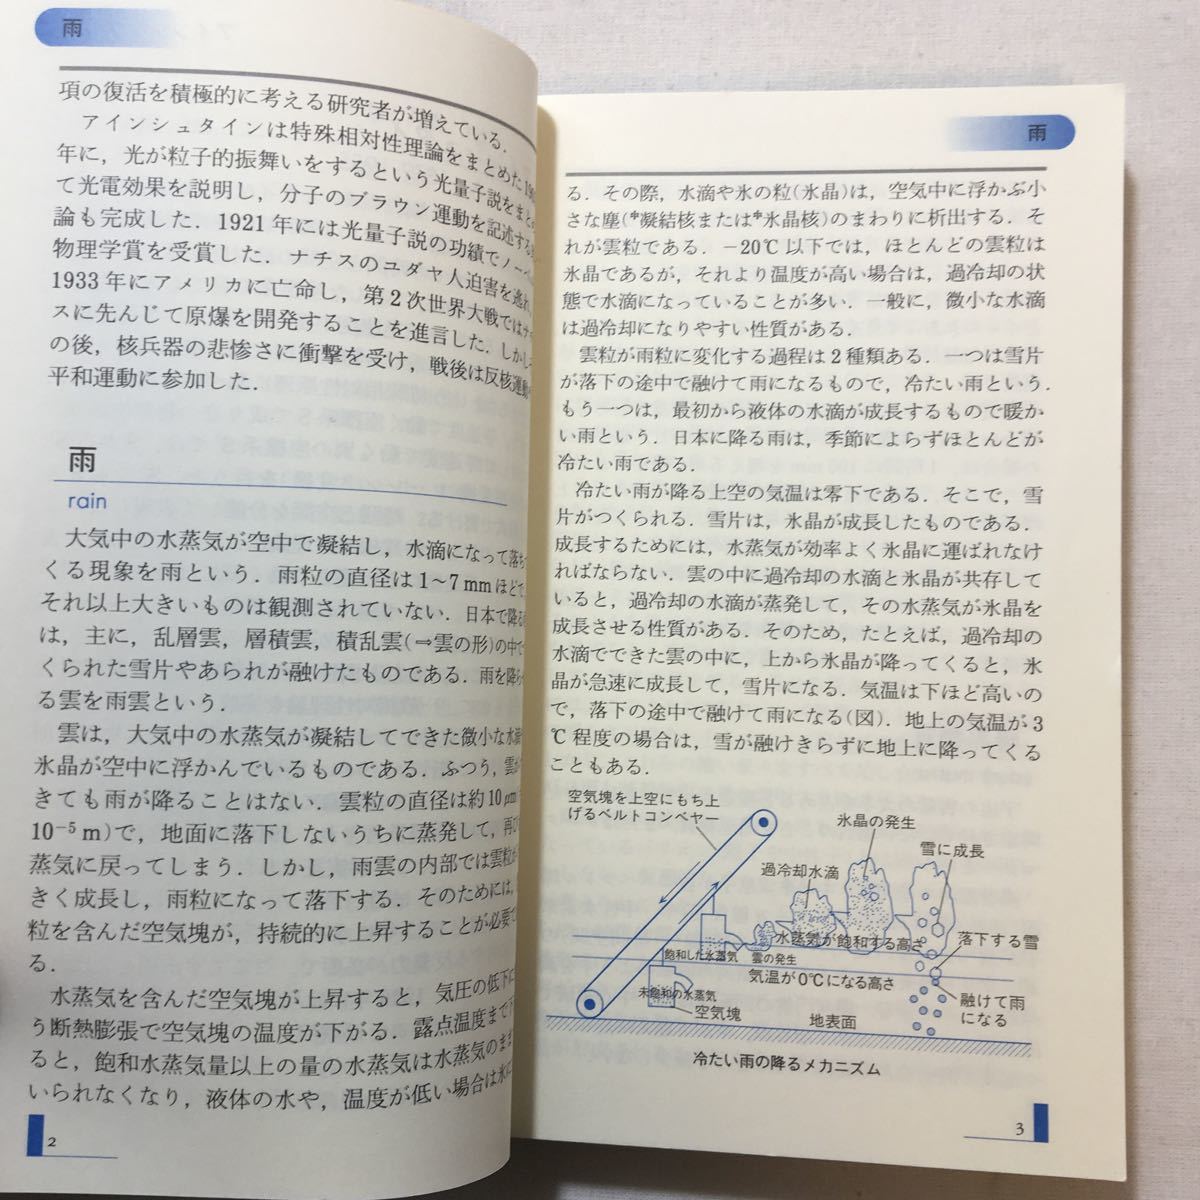 雨
項の復活を積極的に考える研究者が増えている．
アインシュタインは特殊相対性理論をまとめた
年に，光が粒子的振舞いをするという光量子説をまと
て光電効果を説明し，分子のブラウン運動を記述する
論も完成した．1921年には光量子説の功績でノーベ
物理学賞を受賞した．ナチスのユダヤ人迫害を逃れ
1933年にアメリカに亡命し，第2次世界大戦ではナ
スに先んじて原爆を開発することを進言した．しかし
の後，核兵器の悲惨さに衝撃を受け，戦後は反核運動
平和運動に参加した．
雨
rain
大気中の水蒸気が空中で凝結し，水滴になって落ち
くる現象を雨という．雨粒の直径は1～7mmほどで
それ以上大きいものは観測されていない．日本で降る
は，主に，乱層雲，層積雲，積乱雲(⇒雲の形)の中で
くられた雪片やあられが融けたものである．雨を降ら
る雲を雨雲という．
雲は，大気中の水蒸気が凝結してできた微小な水滴
氷晶が空中に浮かんでいるものである．ふつう，雲が
きても雨が降ることはない．雲粒の直径は約10μm
10⁻⁵m)で，地面に落下しないうちに蒸発して，再び
蒸気に戻ってしまう．しかし，雨雲の内部では雲粒が
きく成長し，雨粒になって落下する．そのためには，
粒を含んだ空気塊が，持続的に上昇することが必要で
る．
水蒸気を含んだ空気塊が上昇すると，気圧の低下に
う断熱膨張で空気塊の温度が下がる．露点温度まで下
ると，飽和水蒸気量以上の量の水蒸気は水蒸気のまま
いられなくなり，液体の水や，温度が低い場合は氷に
2
雨
る．その際，水滴や氷の粒(氷晶)は，空気中に浮かぶ小
さな塵(*凝結核または*氷晶核)のまわりに析出する．そ
れが雲粒である．－20℃以下では，ほとんどの雲粒は
氷晶であるが，それより温度が高い場合は，過冷却の状
態で水滴になっていることが多い．一般に，微小な水滴
は過冷却になりやすい性質がある．
雲粒が雨粒に変化する過程は2種類ある．一つは雪片
が落下の途中で融けて雨になるもので，冷たい雨という．
もう一つは，最初から液体の水滴が成長するもので暖か
い雨という．日本に降る雨は，季節によらずほとんどが
冷たい雨である．
冷たい雨が降る上空の気温は零下である．そこで，雪
片がつくられる．雪片は，氷晶が成長したものである．
成長するためには，水蒸気が効率よく氷晶に運ばれなけ
ればならない．雲の中に過冷却の水滴と氷晶が共存して
いると，過冷却の水滴が蒸発して，その水蒸気が氷晶を
成長させる性質がある．そのため，たとえば，過冷却の
水滴でできた雲の中に，上から氷晶が降ってくると，氷
晶が急速に成長して，雪片になる．気温は下ほど高いの
で，落下の途中で融けて雨になる(図)．地上の気温が3
℃程度の場合は，雪が融けきらずに地上に降ってくる
こともある．
空気塊を上空にもち上
げるベルトコンベヤー
氷晶の発生
雪に成長
過冷却水滴
水蒸気が飽和する高さ
落下する雪
飽和した水蒸気
雲の発生
気温が0℃になる高さ
未飽和の水蒸気
空気塊
融けて雨
になる
地表面
冷たい雨の降るメカニズム
3